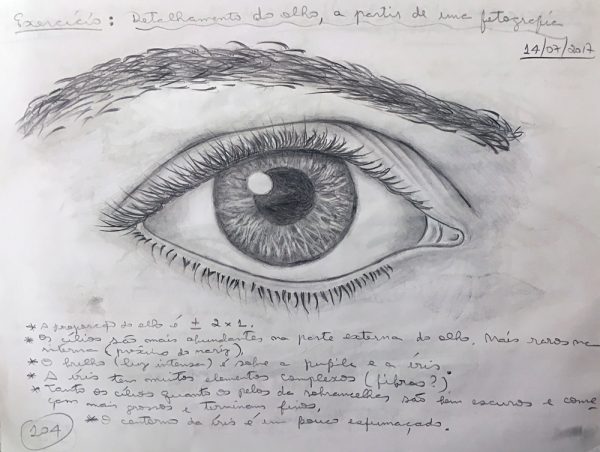 Exercício: Detalhamento do olho, a partir de uma fotografia
14/07/2017
* A proporção do olho é ± 2 x 1.
* Os cílios são mais abundantes na parte externa do olho. Mais raros na
interna (próximo do nariz).
* O brilho (luz intensa) é sobre a pupila e a íris.
* A íris tem muitos elementos complexos (fibras?)
* Tanto os cílios quanto os pelos da sobrancelhas são bem escuros e come-
çam mais grossos e terminam finos.
* O contorno da íris é um pouco esfumaçado.
204